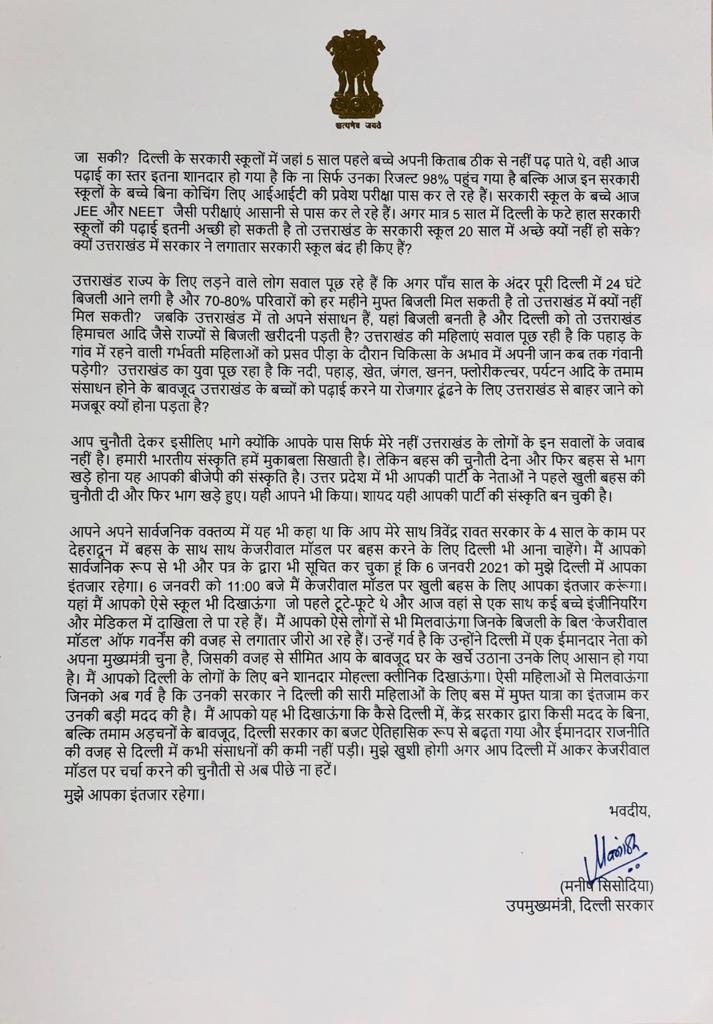 सत्यमेव जयते
जा सकी? दिल्ली के सरकारी स्कूलों में जहां 5 साल पहले बच्चे अपनी किताब ठीक से नहीं पढ़ पाते थे, वही आज
पढ़ाई का स्तर इतना शानदार हो गया है कि ना सिर्फ उनका रिजल्ट 98% पहुंच गया है बल्कि आज इन सरकारी
स्कूलों के बच्चे बिना कोचिंग लिए आईआईटी की प्रवेश परीक्षा पास कर ले रहे हैं। सरकारी स्कूल के बच्चे आज
JEE और NEET जैसी परीक्षाएं आसानी से पास कर ले रहे हैं। अगर मात्र 5 साल में दिल्ली के फटे हाल सरकारी
स्कूलों की पढ़ाई इतनी अच्छी हो सकती है तो उत्तराखंड के सरकारी स्कूल 20 साल में अच्छे क्यों नहीं हो सके?
क्यों उत्तराखंड में सरकार ने लगातार सरकारी स्कूल बंद ही किए हैं?
उत्तराखंड राज्य के लिए लड़ने वाले लोग सवाल पूछ रहे हैं कि अगर पाँच साल के अंदर पूरी दिल्ली में 24 घंटे
बिजली आने लगी है और 70-80% परिवारों को हर महीने मुफ्त बिजली मिल सकती है तो उत्तराखंड में क्यों नहीं
मिल सकती? जबकि उत्तराखंड में तो अपने संसाधन हैं, यहां बिजली बनती है और दिल्ली को तो उत्तराखंड
हिमाचल आदि जैसे राज्यों से बिजली खरीदनी पड़ती है? उत्तराखंड की महिलाएं सवाल पूछ रही है कि पहाड़ के
गांव में रहने वाली गर्भवती महिलाओं को प्रसव पीड़ा के दौरान चिकित्सा के अभाव में अपनी जान कब तक गंवानी
पड़ेगी? उत्तराखंड का युवा पूछ रहा है कि नदी, पहाड़, खेत, जंगल, खनन, फ्लोरीकल्चर, पर्यटन आदि के तमाम
संसाधन होने के बावजूद उत्तराखंड के बच्चों को पढ़ाई करने या रोजगार ढूंढने के लिए उत्तराखंड से बाहर जाने को
मजबूर क्यों होना पड़ता है?
आप चुनौती देकर इसीलिए भागे क्योंकि आपके पास सिर्फ मेरे नहीं उत्तराखंड के लोगों के इन सवालों के जवाब
नहीं है। हमारी भारतीय संस्कृति हमें मुकाबला सिखाती है। लेकिन बहस की चुनौती देना और फिर बहस से भाग
खड़े होना यह आपकी बीजेपी की संस्कृति है। उत्तर प्रदेश में भी आपकी पार्टी के नेताओं ने पहले खुली बहस की
चुनौती दी और फिर भाग खड़े हुए। यही आपने भी किया। शायद यही आपकी पार्टी की संस्कृति बन चुकी है।
आपने अपने सार्वजनिक वक्तव्य में यह भी कहा था कि आप मेरे साथ त्रिवेंद्र रावत सरकार के 4 साल के काम पर
देहरादून में बहस के साथ साथ केजरीवाल मॉडल पर बहस करने के लिए दिल्ली भी आना चाहेंगे। मैं आपको
सार्वजनिक रूप से भी और पत्र के द्वारा भी सूचित कर चुका हूं कि 6 जनवरी 2021 को मुझे दिल्ली में आपका
इंतजार रहेगा। 6 जनवरी को 11:00 बजे मैं केजरीवाल मॉडल पर खुली बहस के लिए आपका इंतजार करूंगा।
यहां मैं आपको ऐसे स्कूल भी दिखाऊंगा जो पहले टूटे-फूटे थे और आज वहां से एक साथ कई बच्चे इंजीनियरिंग
और मेडिकल में दाखिला ले पा रहे हैं। मैं आपको ऐसे लोगों से भी मिलवाऊंगा जिनके बिजली के बिल 'केजरीवाल
मॉडल' ऑफ गवर्नेंस की वजह से लगातार जीरो आ रहे हैं। उन्हें गर्व है कि उन्होंने दिल्ली में एक ईमानदार नेता को
अपना मुख्यमंत्री चुना है, जिसकी वजह से सीमित आय के बावजूद घर के खर्चे उठाना उनके लिए आसान हो गया
है। मैं आपको दिल्ली के लोगों के लिए बने शानदार मोहल्ला क्लीनिक दिखाऊंगा। ऐसी महिलाओं से मिलवाऊंगा
जिनको अब गर्व है कि उनकी सरकार ने दिल्ली की सारी महिलाओं के लिए बस में मुफ्त यात्रा का इंतजाम कर
उनकी बड़ी मदद की है। मैं आपको यह भी दिखाऊंगा कि कैसे दिल्ली में, केंद्र सरकार द्वारा किसी मदद के बिना,
बल्कि तमाम अड़चनों के बावजूद, दिल्ली सरकार का बजट ऐतिहासिक रूप से बढ़ता गया और ईमानदार राजनीति
की वजह से दिल्ली में कभी संसाधनों की कमी नहीं पड़ी। मुझे खुशी होगी अगर आप दिल्ली में आकर केजरीवाल
मॉडल पर चर्चा करने की चुनौती से अब पीछे ना हटें।
मुझे आपका इंतजार रहेगा।
भवदीय,
Manish
(मनीष सिसोदिया)
उपमुख्यमंत्री, दिल्ली सरकार